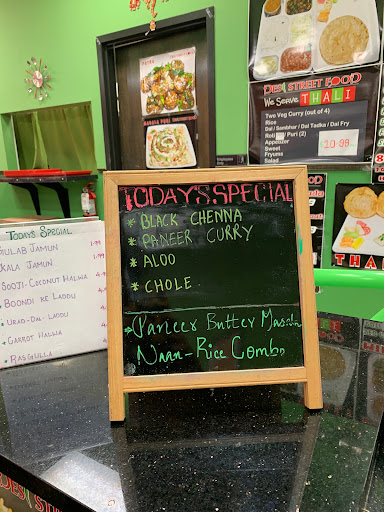 TODAY'S SPECIAL
* BLACK CHENNA
* PANEER CURRY
* ALOO
* CHOLE
* Paneer Butter Masala
Naan-Rice Combo
TODAY'S SPECIAL
GULAB JAMUN 1.99
KALA JAMUN 1.99
SOOJI-COCONUT HALWA
BOONDI KE LADDU
URAD-DAL LADDU
CARROT HALWA
RASGULLA
DESI STREET FOOD
WE SERVE THALI
Two Veg Curry (out of 4)
Rice
Dal / Sambhar / Dal Tadka / Dal Fry
Roti / Puri (2)
Appetizer
Sweet
Fryums
Salad
10.99
THA
DESI ST